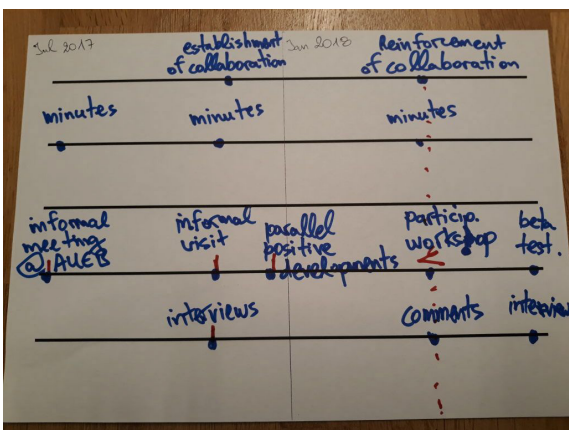 Jul 2017
establishment
of collaboration
Jan 2018
Reinforcement
of collaboration
minutes
minutes
minutes
informal
meeting
@ AUEB
informal
visit
parallel
positive
developments
particip.
workshop
beta
test.
interviews
comments
interview